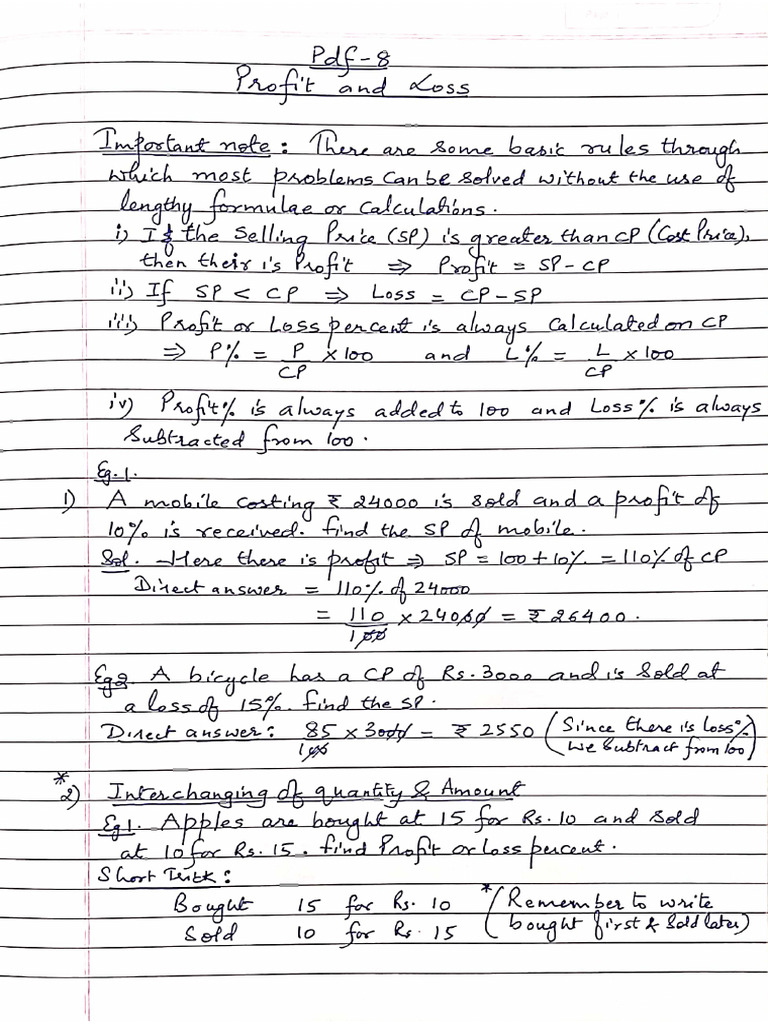 Pdf-8
Profit and Loss
Important note: There are some basic rules through
which most problems can be solved without the use of
lengthy formulae or calculations.
i) If the Selling Price (SP) is greater than CP (Cost Price),
then their is Profit ⇒ Profit = SP - CP
ii) If SP < CP ⇒ Loss = CP - SP
iii) Profit or Loss percent is always calculated on CP
⇒ P% = P/CP × 100 and L% = L/CP × 100
iv) Profit% is always added to 100 and Loss% is always
Subtracted from 100.
Eg.1.
1) A mobile costing ₹ 24000 is sold and a profit of
10% is received. find the SP of mobile.
Sol. Here there is profit ⇒ SP = 100 + 10% = 110% of CP
Direct answer = 110% of 24000
= 110/100 × 24000 = ₹ 26400.
Eg2 A bicycle has a CP of Rs. 3000 and is Sold at
a loss of 15%. find the SP.
Direct answer: 85/100 × 3000 = ₹ 2550 (Since there is loss%
we Subtract from 100)
* 2) Interchanging of quantity & Amount
Eg1. Apples are bought at 15 for Rs. 10 and sold
at 10 for Rs. 15. find Profit or loss percent.
Short Trick:
Bought 15 for Rs. 10 * (Remember to write
Sold 10 for Rs. 15 bought first & Sold later)